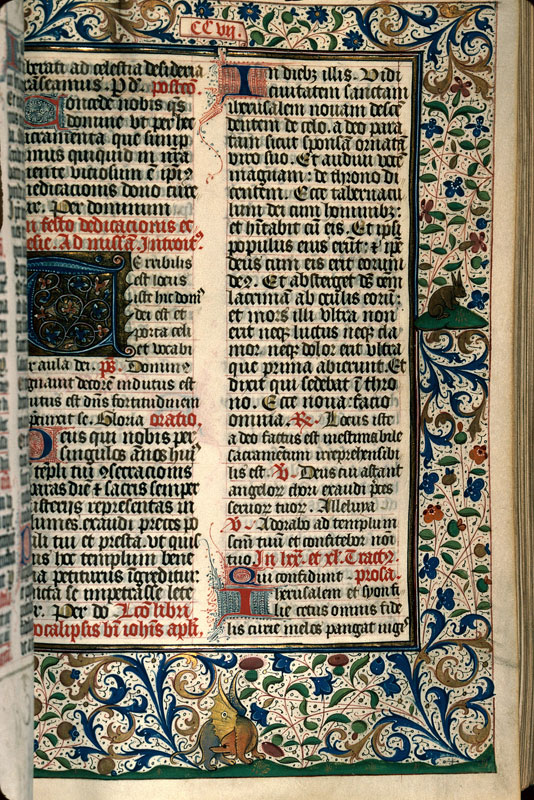 CCVII.
brati ad celestia desideria
transeamus. P d. postcō.
Concede nobis q̄s
domine vt per hec
sacramenta que sump
imus quicquid in nr̄a
mente viciosum ē ip̄i9
medicacionis dono cure
tur. Per dominum
In festo dedicacionis ec
clesie. Ad missā. Introit9
Terribilis
est locus
iste hic dom9
dei est et
porta celi
et vocabi
tur aula dei. ps̄. Domin9
regnauit decorē indutus est
indutus est dn̄s fortitudinem
precinxit se. Gloria oratio.
Deus qui nobis per
singulos ānos hui9
templi tui 9secracionis
reparas diē & sacris semper
misterijs representas in
columes. exaudi preces po
puli tui et presta. vt quis
quis hoc templum bene
ficia petiturus īgreditur
cuncta se impetrasse lete
tur. Per do Lcō libri
apocalipsis bt̄i ioh̄is apl̄i.
In dieb9 illis. Vidi
ciuitatem sanctam
iherusalem nouam descē
dentem de celo. a deo para
tam sicut sponsā ornatā
viro suo. Et audiui vocē
magnam. de throno di
centem. Ecce tabernacu
lum dei cum hominib9.
et h̄itabit cū eis. Et ip̄i
populus eius erūt. & ip̄e
deus cum eis erit eorum
de9. Et absterget ds̄ oēm
lacrimā ab oculis eorū.
et mors illi vltra non
erit neq9 luctus neq9 cla
mor. neq9 dolor erit vltra
que prima abierunt. Et
dixit qui sedebat ī thro
no. Ecce noua facio
omnia. R̸. Locus iste
a deo factus est inestimabile
sacramētum irreprehensibi
lis est. V̸ Deus cui astant
angelor9 chori exaudi p̄ces
seruor9 tuor9. Alleluya
V̸. Adorabo ad templum
scm̄ tuū et confitebor noī
tuo In lxx. et xl. Tract9
Qui confidunt. prosa.
Iherusalem et syon fi
lie cetus omnis fide
lis curie melos pangat iugi9